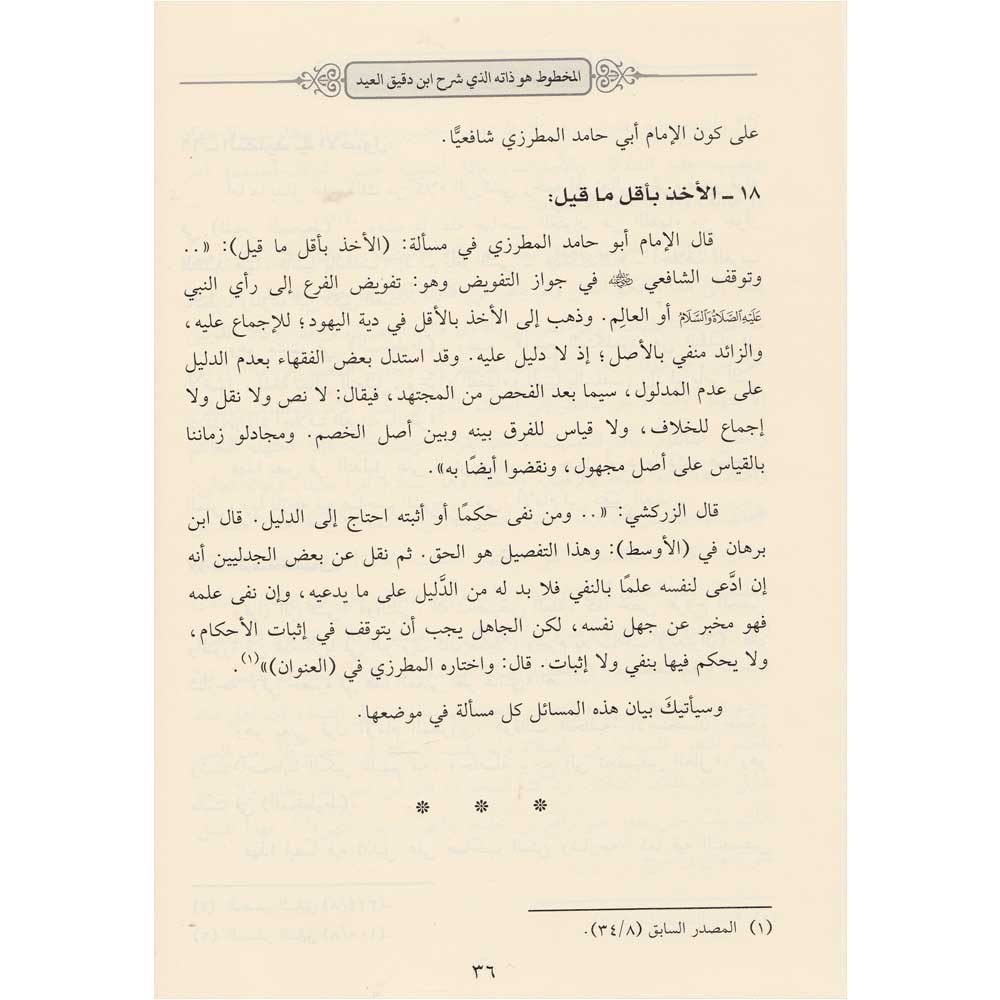 المخطوط هو ذاته الذي شرح ابن دقيق العيد
على كون الإمام أبي حامد المطرزي شافعيًّا.
١٨ ـ الأخذ بأقل ما قيل:
قال الإمام أبو حامد المطرزي في مسألة: (الأخذ بأقل ما قيل): «..
وتوقف الشافعي رضي الله عنه في جواز التفويض وهو: تفويض الفرع إلى رأي النبي
عليه الصلاة والسلام أو العالِم. وذهب إلى الأخذ بالأقل في دية اليهود؛ للإجماع عليه،
والزائد منفي بالأصل؛ إذ لا دليل عليه. وقد استدل بعض الفقهاء بعدم الدليل
على عدم المدلول، سيما بعد الفحص من المجتهد، فيقال: لا نص ولا نقل ولا
إجماع للخلاف، ولا قياس للفرق بينه وبين أصل الخصم. ومجادلو زماننا
بالقياس على أصل مجهول، ونقضوا أيضًا به».
قال الزركشي: «.. ومن نفى حكمًا أو أثبته احتاج إلى الدليل. قال ابن
برهان في (الأوسط): وهذا التفصيل هو الحق. ثم نقل عن بعض الجدليين أنه
إن ادَّعى لنفسه علمًا بالنفي فلا بد له من الدَّليل على ما يدعيه، وإن نفى علمه
فهو مخبر عن جهل نفسه، لكن الجاهل يجب أن يتوقف في إثبات الأحكام،
ولا يحكم فيها بنفي ولا إثبات. قال: واختاره المطرزي في (العنوان)»(١).
وسيأتيكَ بيان هذه المسائل كل مسألة في موضعها.
(١) المصدر السابق (٣٤/٨).
٣٦